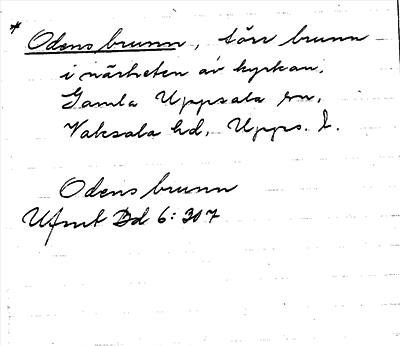 * Odens brunn, torr brunn
i närheten av kyrkan,
Gamla Uppsala sn,
Vaksala hd, Upps. l.
Odens brunn
Ufmt Bd 6: 307